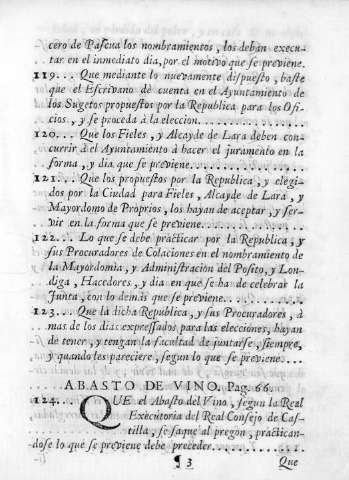 cero de Pascua los nombramientos, los deban execu-
tar en el inmediato dia, por el motivo que se previene.
119... Que mediante lo nuevamente dispuesto, baste
que el Escrivano dè cuenta en el Ayuntamiento de
los Sugetos propuestos por la Republica para los Ofi-
cios, y se proceda à la eleccion.....................
120... Que los Fieles, y Alcayde de Lara deben con-
currir à el Ayuntamiento à hacer el juramento en la
forma, y dia que se previene..................
121... Que los propuestos por la Republica, y elegi-
dos por la Ciudad para Fieles, Alcayde de Lara, y
Mayordomo de Proprios, los hayan de aceptar, y ser-
vir en la forma que se previene...................
122... Lo que se debe pràcticar por la Republica, y
sus Procuradores de Colaciones en el nombramiento de
la Mayordomìa, y Administracion del Posito, y Lon-
diga, Hacedores, y dia en què se ha de celebrar la
Junta, con lo demàs que se previene.............
123... Que la dicha Republica, y sus Procuradores, à
mas de los dias expressados para las elecciones, hayan
de tener, y tengan la facultad de juntarse, siempre,
y quando les pareciere, segun lo que se previene....
ABASTO DE VINO. Pag. 66.
124... QUE el Abasto del Vino, segun la Real
Executoria del Real Consejo de Cas-
tilla, se saque al pregòn, pràctican-
dose lo que se previene debe preceder............
¶ 3 Que